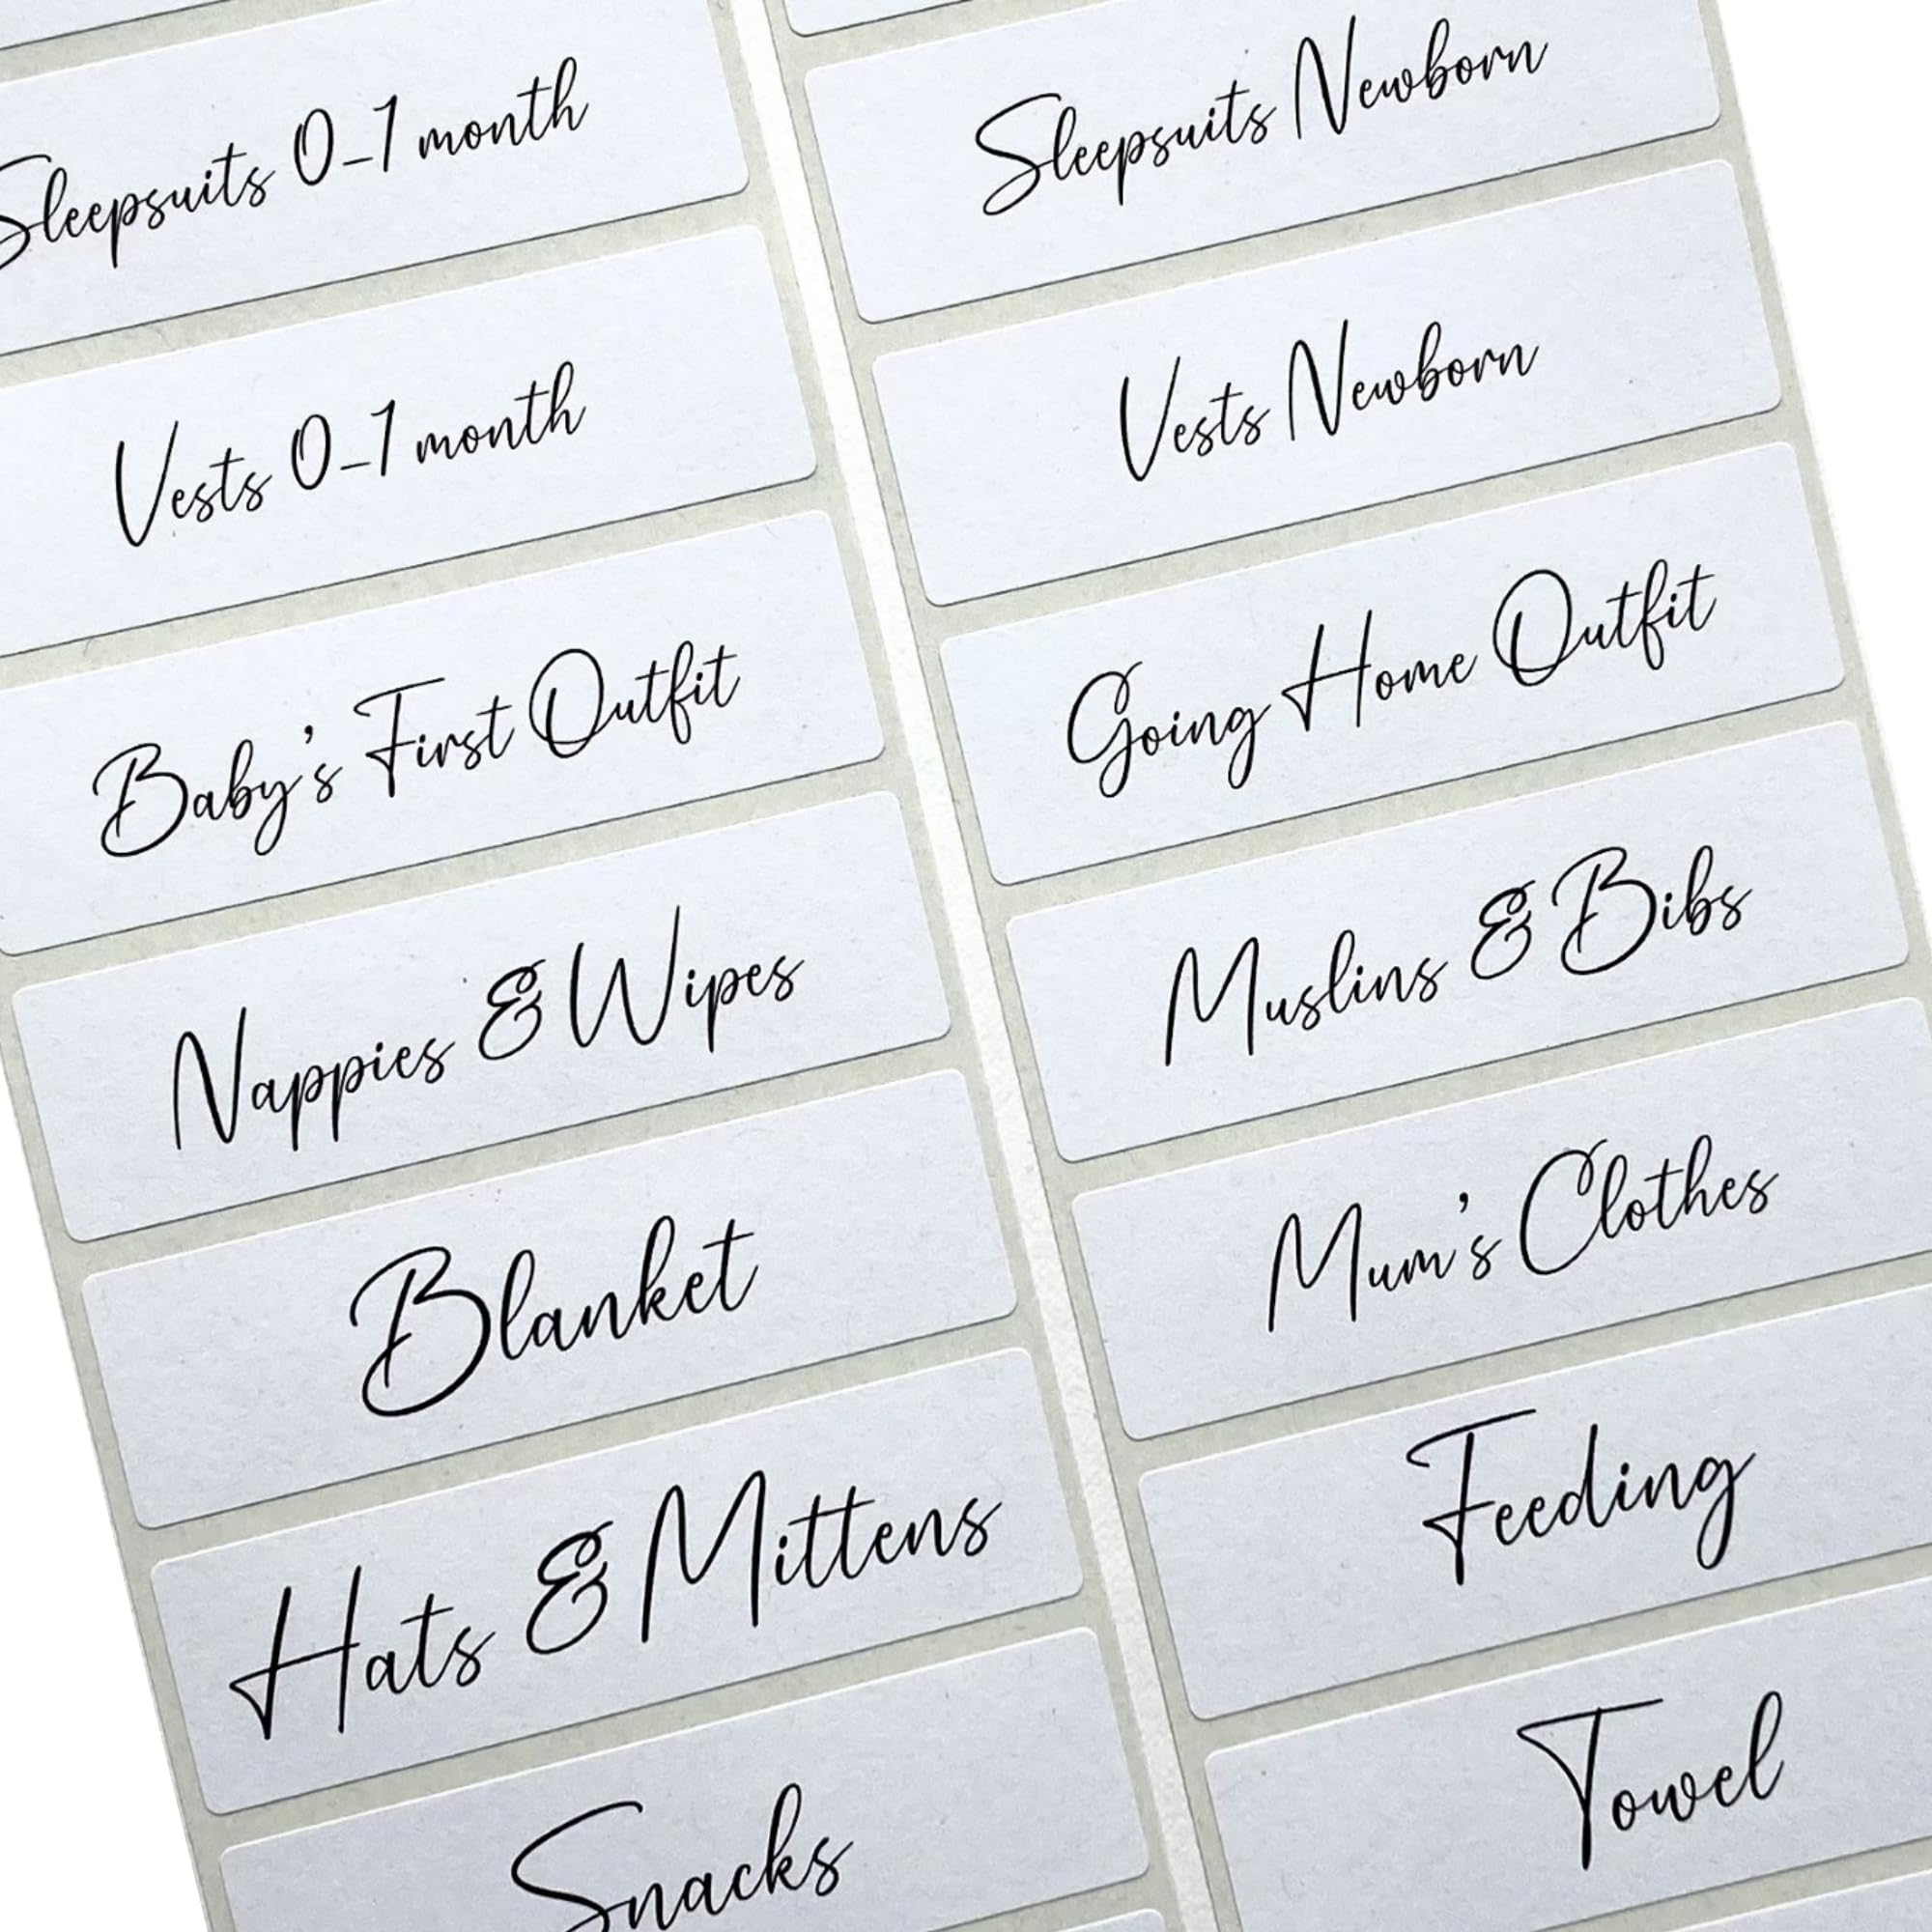 Sleepsuits 0-1 month
Vests 0-1 month
Baby's First Outfit
Nappies & Wipes
Blanket
Hats & Mittens
Snacks
Sleepsuits Newborn
Vests Newborn
Going Home Outfit
Muslins & Bibs
Mum's Clothes
Feeding
Towel